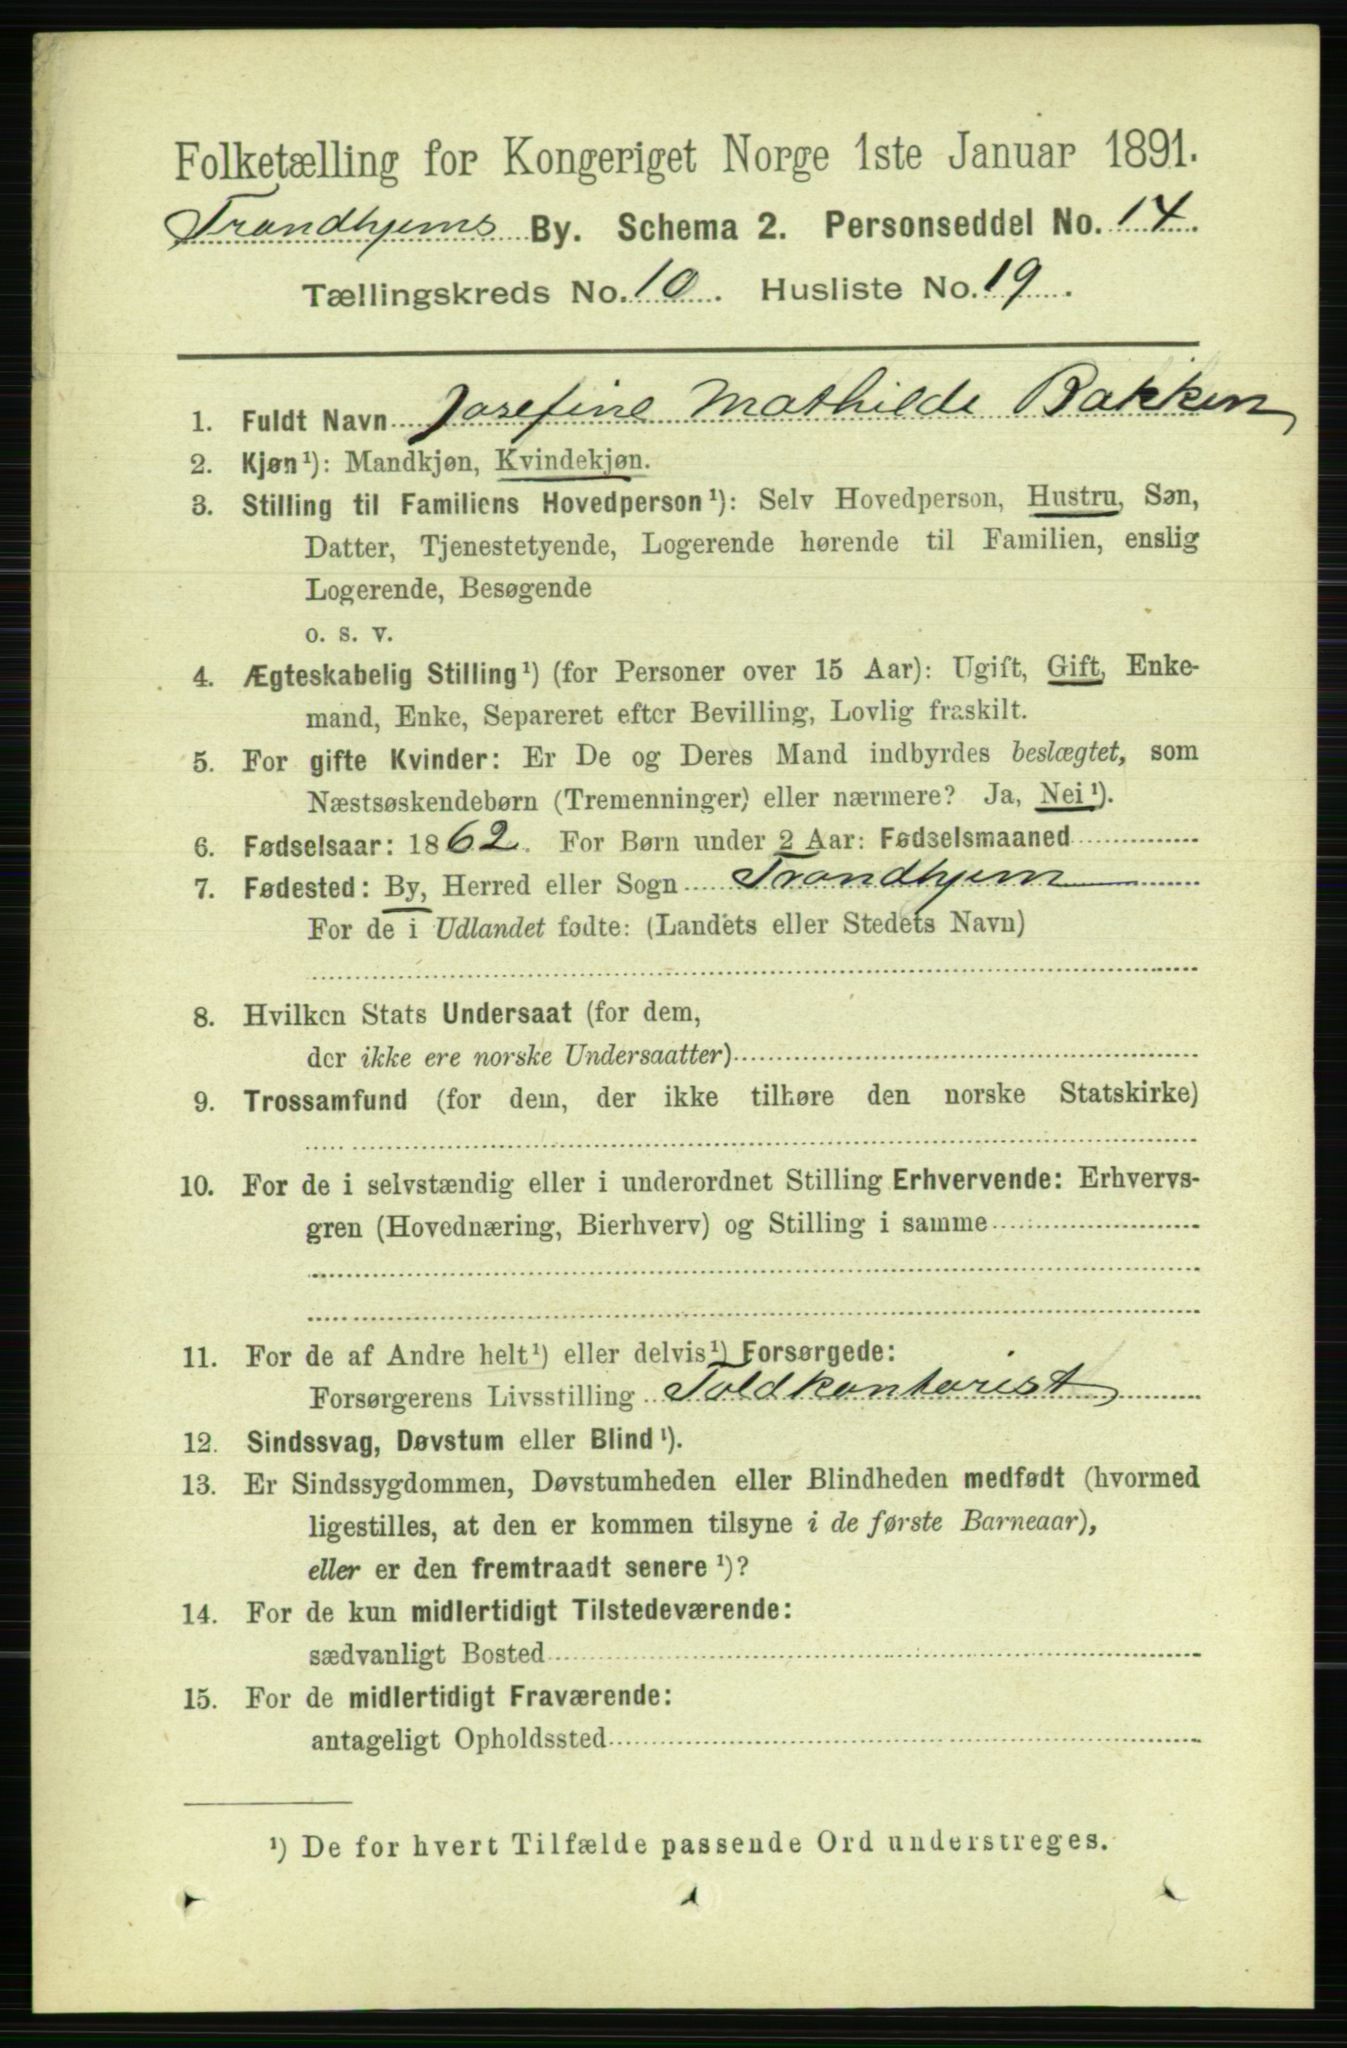 Folketælling for Kongeriget Norge 1ste Januar 1891.
Trondhjems By. Schema 2. Personseddel No. 14.
Tællingskreds No. 10. Husliste No. 19.
1. Fuldt Navn Josefine Mathilde Bakken
2. Kjøn¹): Mandkjøn, Kvindekjøn.
3. Stilling til Familiens Hovedperson¹): Selv Hovedperson, Hustru, Søn,
Datter, Tjenestetyende, Logerende hørende til Familien, enslig
Logerende, Besøgende
o. s. v.
4. Ægteskabelig Stilling¹) (for Personer over 15 Aar): Ugift, Gift, Enke-
mand, Enke, Separeret efter Bevilling, Lovlig fraskilt.
5. For gifte Kvinder: Er De og Deres Mand indbyrdes beslægtet, som
Næstsøskendebørn (Tremenninger) eller nærmere? Ja, Nei¹).
6. Fødselsaar: 1862. For Børn under 2 Aar: Fødselsmaaned
7. Fødested: By, Herred eller Sogn Trondhjem
For de i Udlandet fødte: (Landets eller Stedets Navn)
8. Hvilken Stats Undersaat (for dem,
der ikke ere norske Undersaatter)
9. Trossamfund (for dem, der ikke tilhøre den norske Statskirke)
10. For de i selvstændig eller i underordnet Stilling Erhvervende: Erhvervs-
gren (Hovednæring, Bierhverv) og Stilling i samme
11. For de af Andre helt¹) eller delvis¹) Forsørgede:
Forsørgerens Livsstilling Toldkontorist
12. Sindssvag, Døvstum eller Blind¹).
13. Er Sindssygdommen, Døvstumheden eller Blindheden medfødt (hvormed
ligestilles, at den er kommen tilsyne i de første Barneaar),
eller er den fremtraadt senere¹)?
14. For de kun midlertidigt Tilstedeværende:
sædvanligt Bosted
15. For de midlertidigt Fraværende:
antageligt Opholdssted
¹) De for hvert Tilfælde passende Ord understreges.